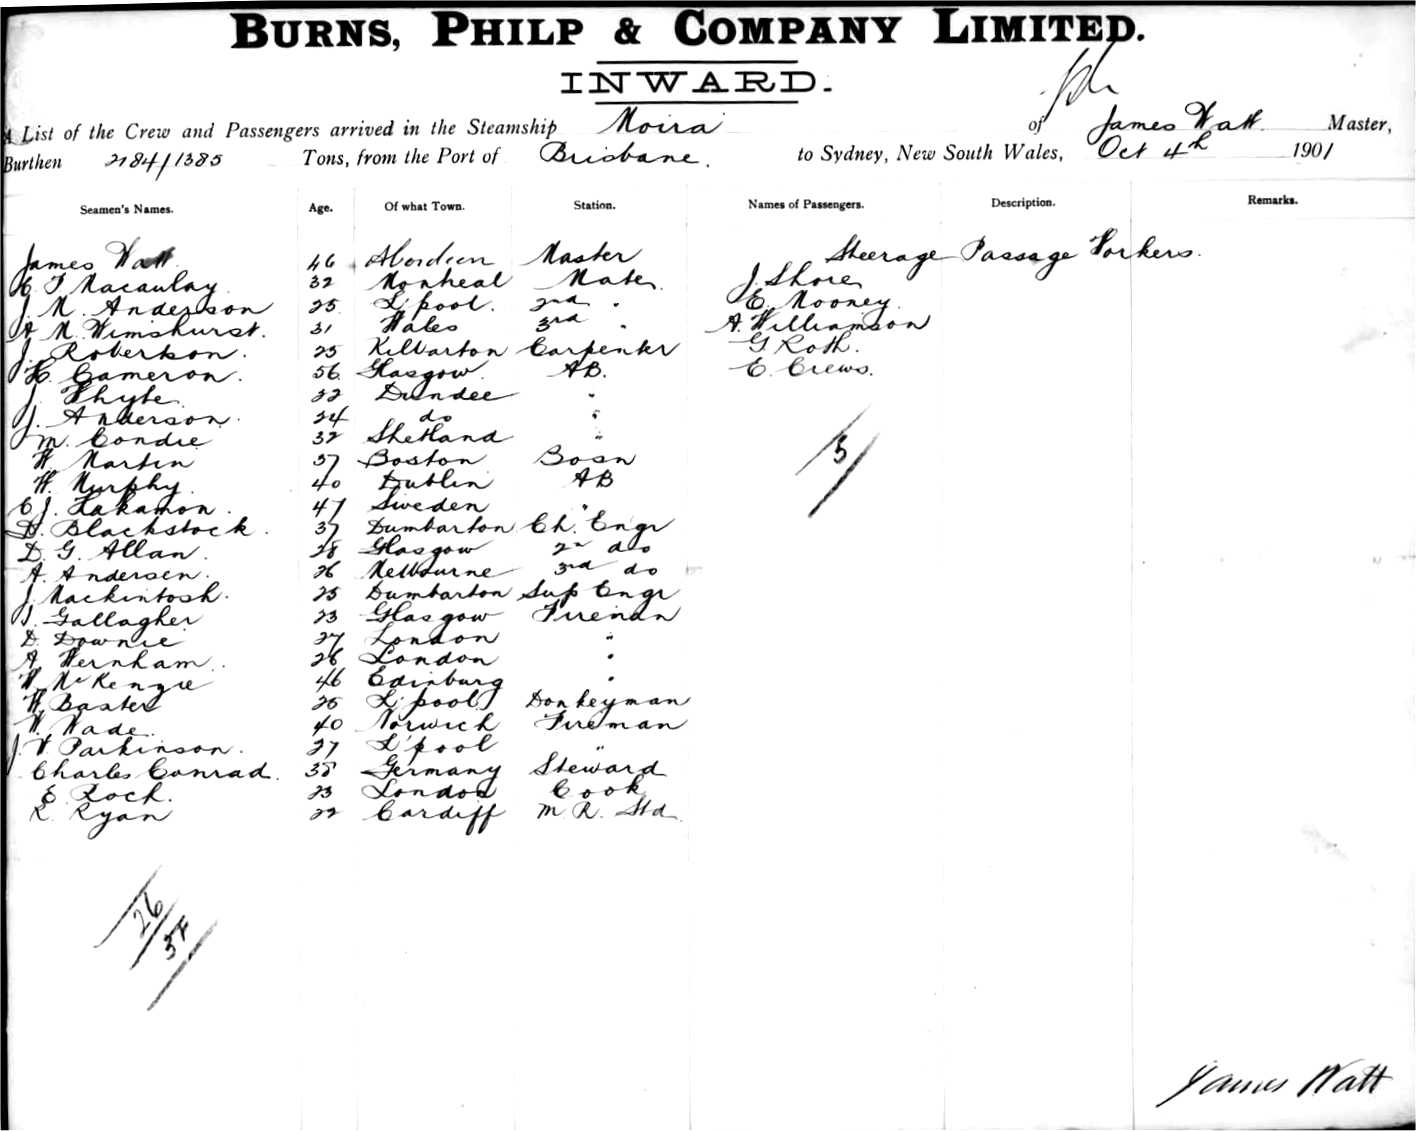 BURNS, PHILP & COMPANY LIMITED.
INWARD.
A List of the Crew and Passengers arrived in the Steamship Moira of James Watt Master,
Burthen 2184/1385 Tons, from the Port of Brisbane. to Sydney, New South Wales, Oct 4th 1901
Seamen's Names. Age. Of what Town. Station. Names of Passengers. Description. Remarks.
Steerage Passage Workers.
James Watt 46 Aberdeen Master
C T Macaulay 32 Montreal Mate J. Shore
J. M. Anderson 25 L'pool. 2nd " E. Mooney.
A M Wimshurst. 31 Wales 3rd " A. Williamson
J. Robertson. 25 Kilbarton Carpenter G Roth.
H. Cameron. 56 Glasgow. AB. E. Crews.
J. Whyte 32 Dundee "
J. Anderson. 24 do "
M. Condie 32 Shetland "
W. Martin 37 Boston Bosn
W. Murphy. 40 Dublin AB
C J. Lakamon. 47 Sweden "
D. Blackstock. 37 Dumbarton Ch. Engr
D. G. Allan. 28 Glasgow 2n do
A. Andersen. 26 Melbourne 3rd do
J. Mackintosh. 25 Dumbarton Sup Engr
J. Gallagher 23 Glasgow Fireman
D. Downie 27 London "
A. Wernham. 26 London "
W. McKenzie 46 Edinburg "
W. Baxter 25 L'pool Donkeyman
W. Wade. 40 Norwich Fireman
J. V. Parkinson. 27 L'pool "
Charles Conrad. 38 Germany Steward
E. Rock. 23 London Cook
R. Ryan 22 Cardiff M. R. Std.
5
26
James Watt